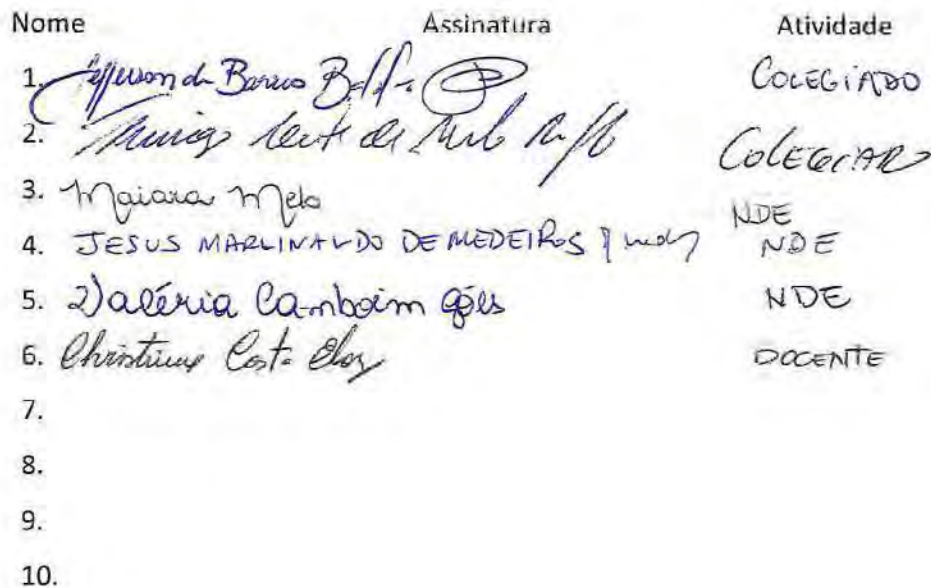 Nome Assinatura Atividade
1. Jefferson de Barros COLEGIADO
2. de COLEGIAD
3. Maiara Melo NDE
4. JESUS MARLINALDO DE MEDEIROS NDE
5. Valéria Camboim Góes NDE
6. Christiane Costa Eloy DOCENTE
7.
8.
9.
10.